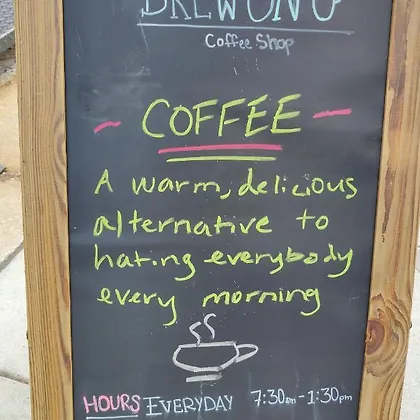 Coffee Shop
- COFFEE -
A warm, delicious
alternative to
hating everybody
every morning
HOURS EVERYDAY 7:30am-1:30pm